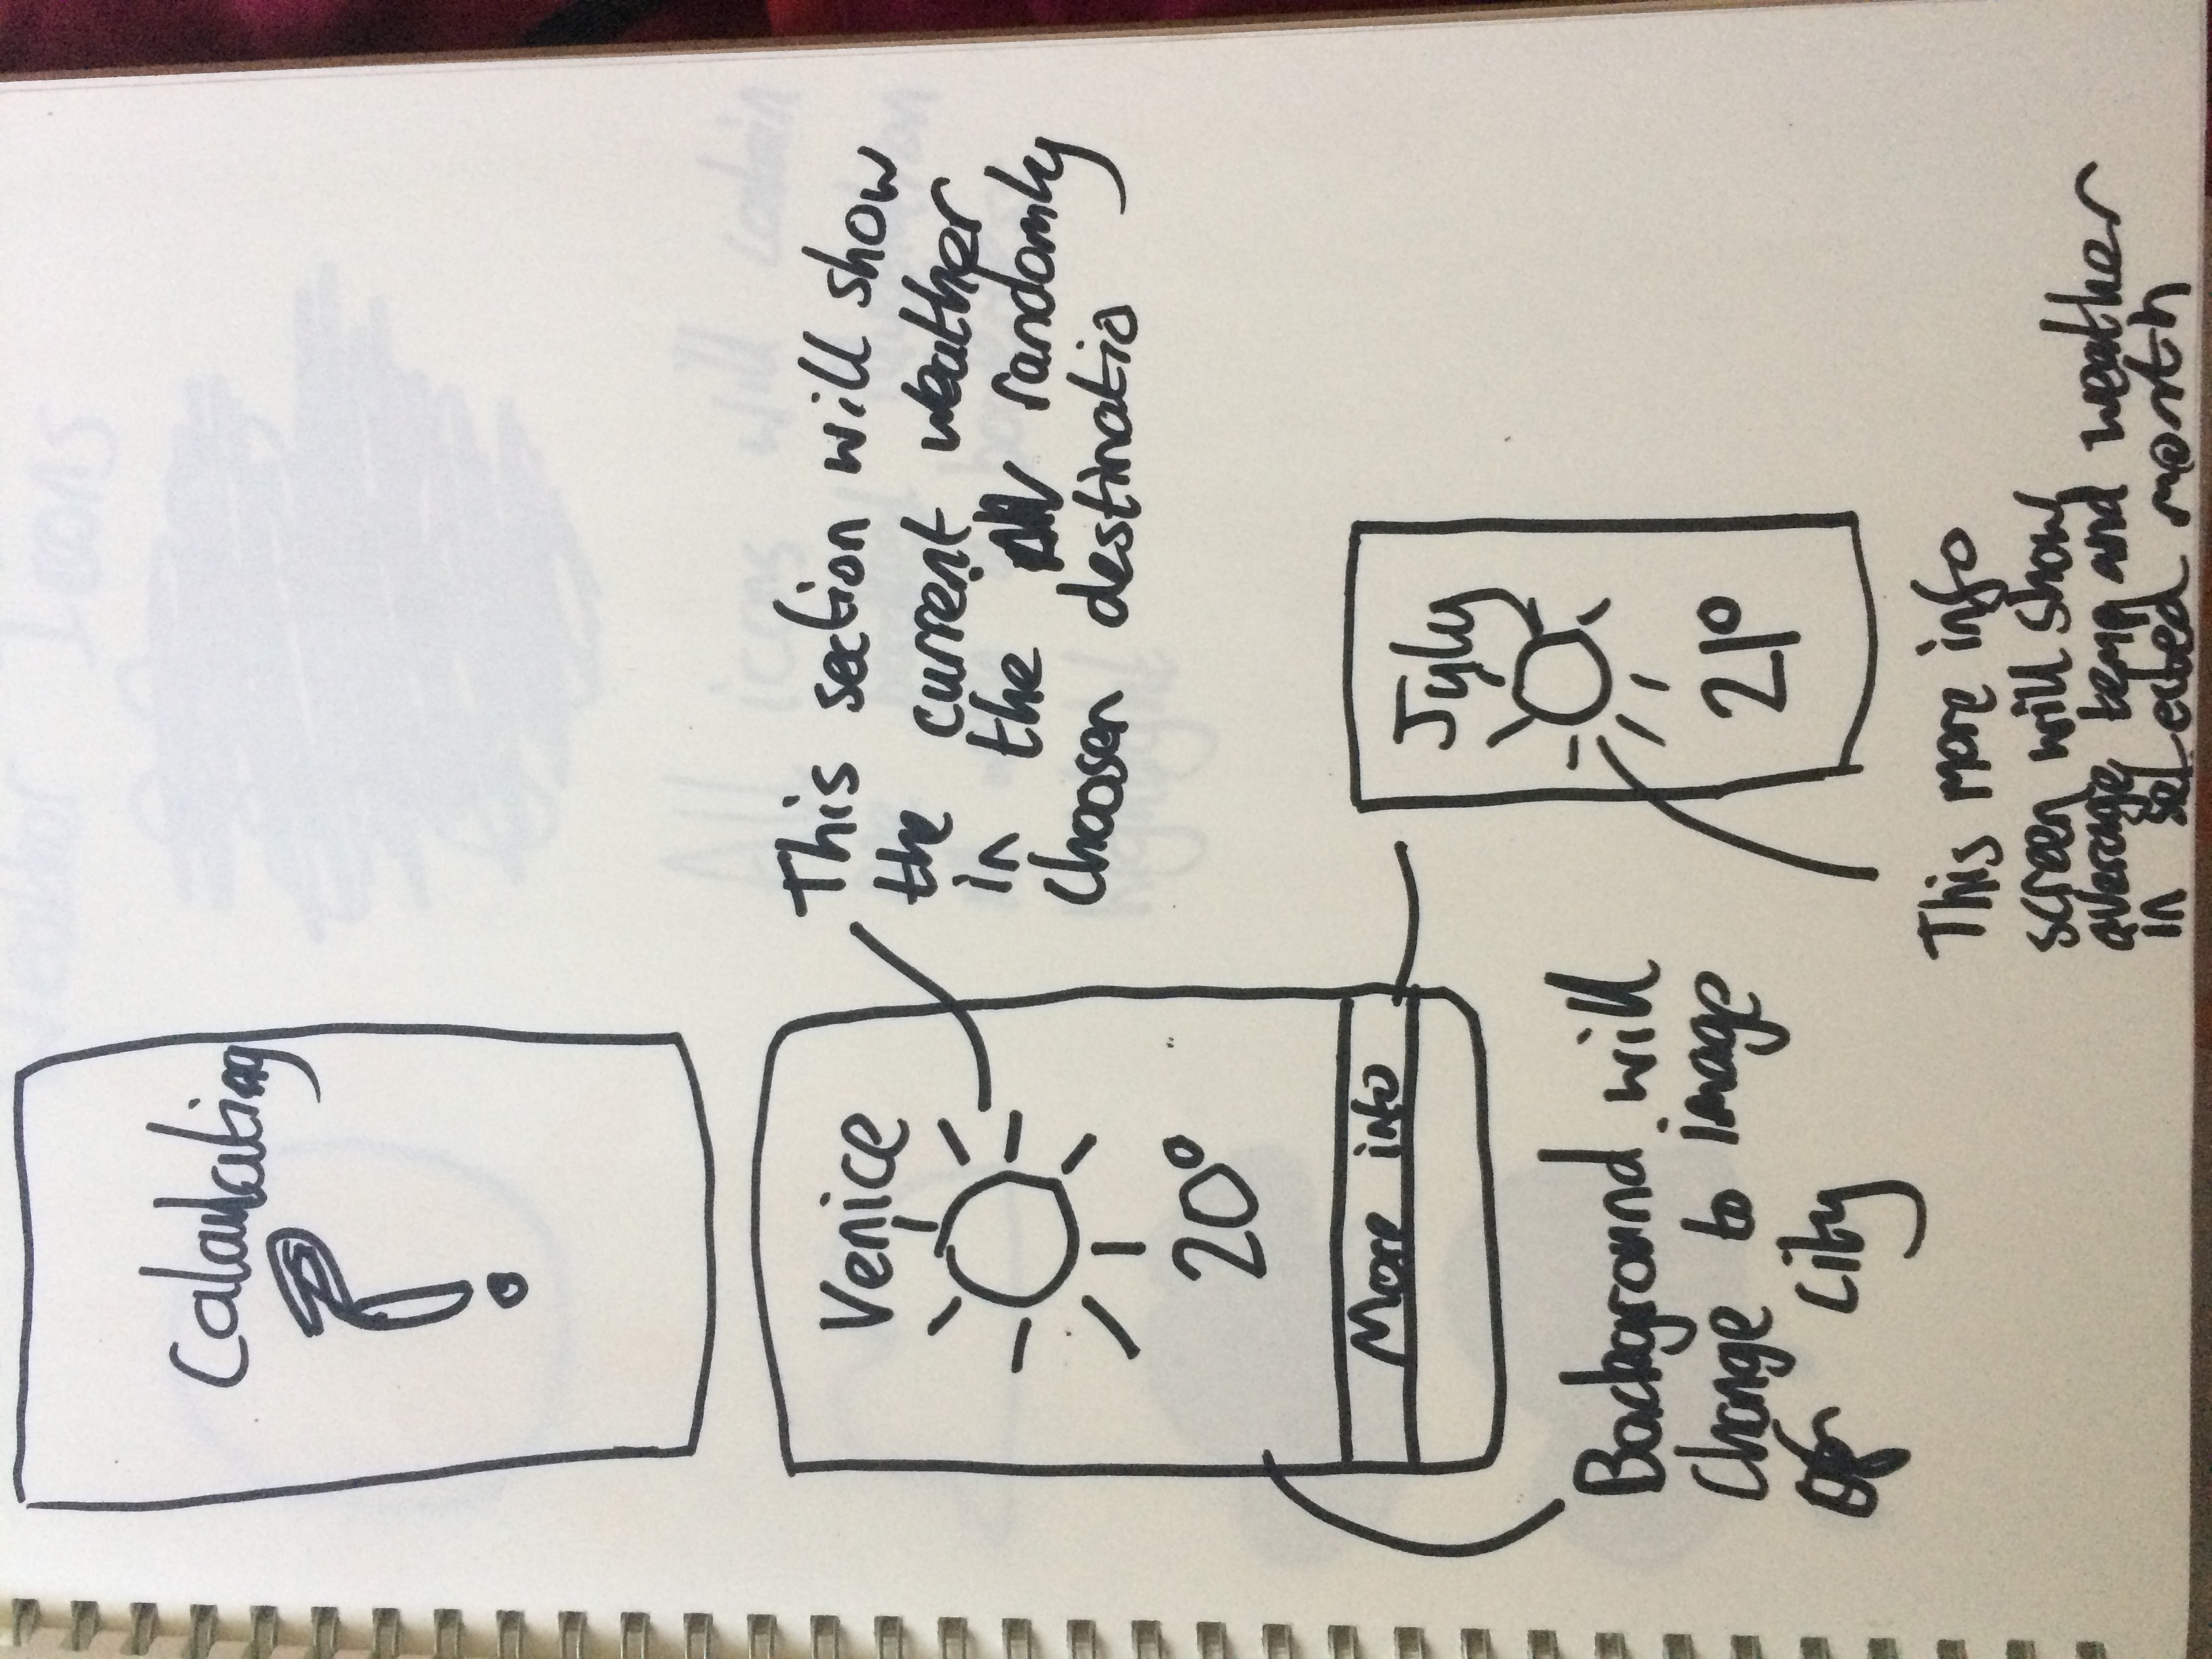 Calculating
?
Venice
20°
More info
This section will show
the current weather
in the randomly
choosen destinatio
Background will
change to image
of city
July
21°
This more info
screen will show
average temp and weather
in selected month
Weather Icons
All icons will contain
highlight